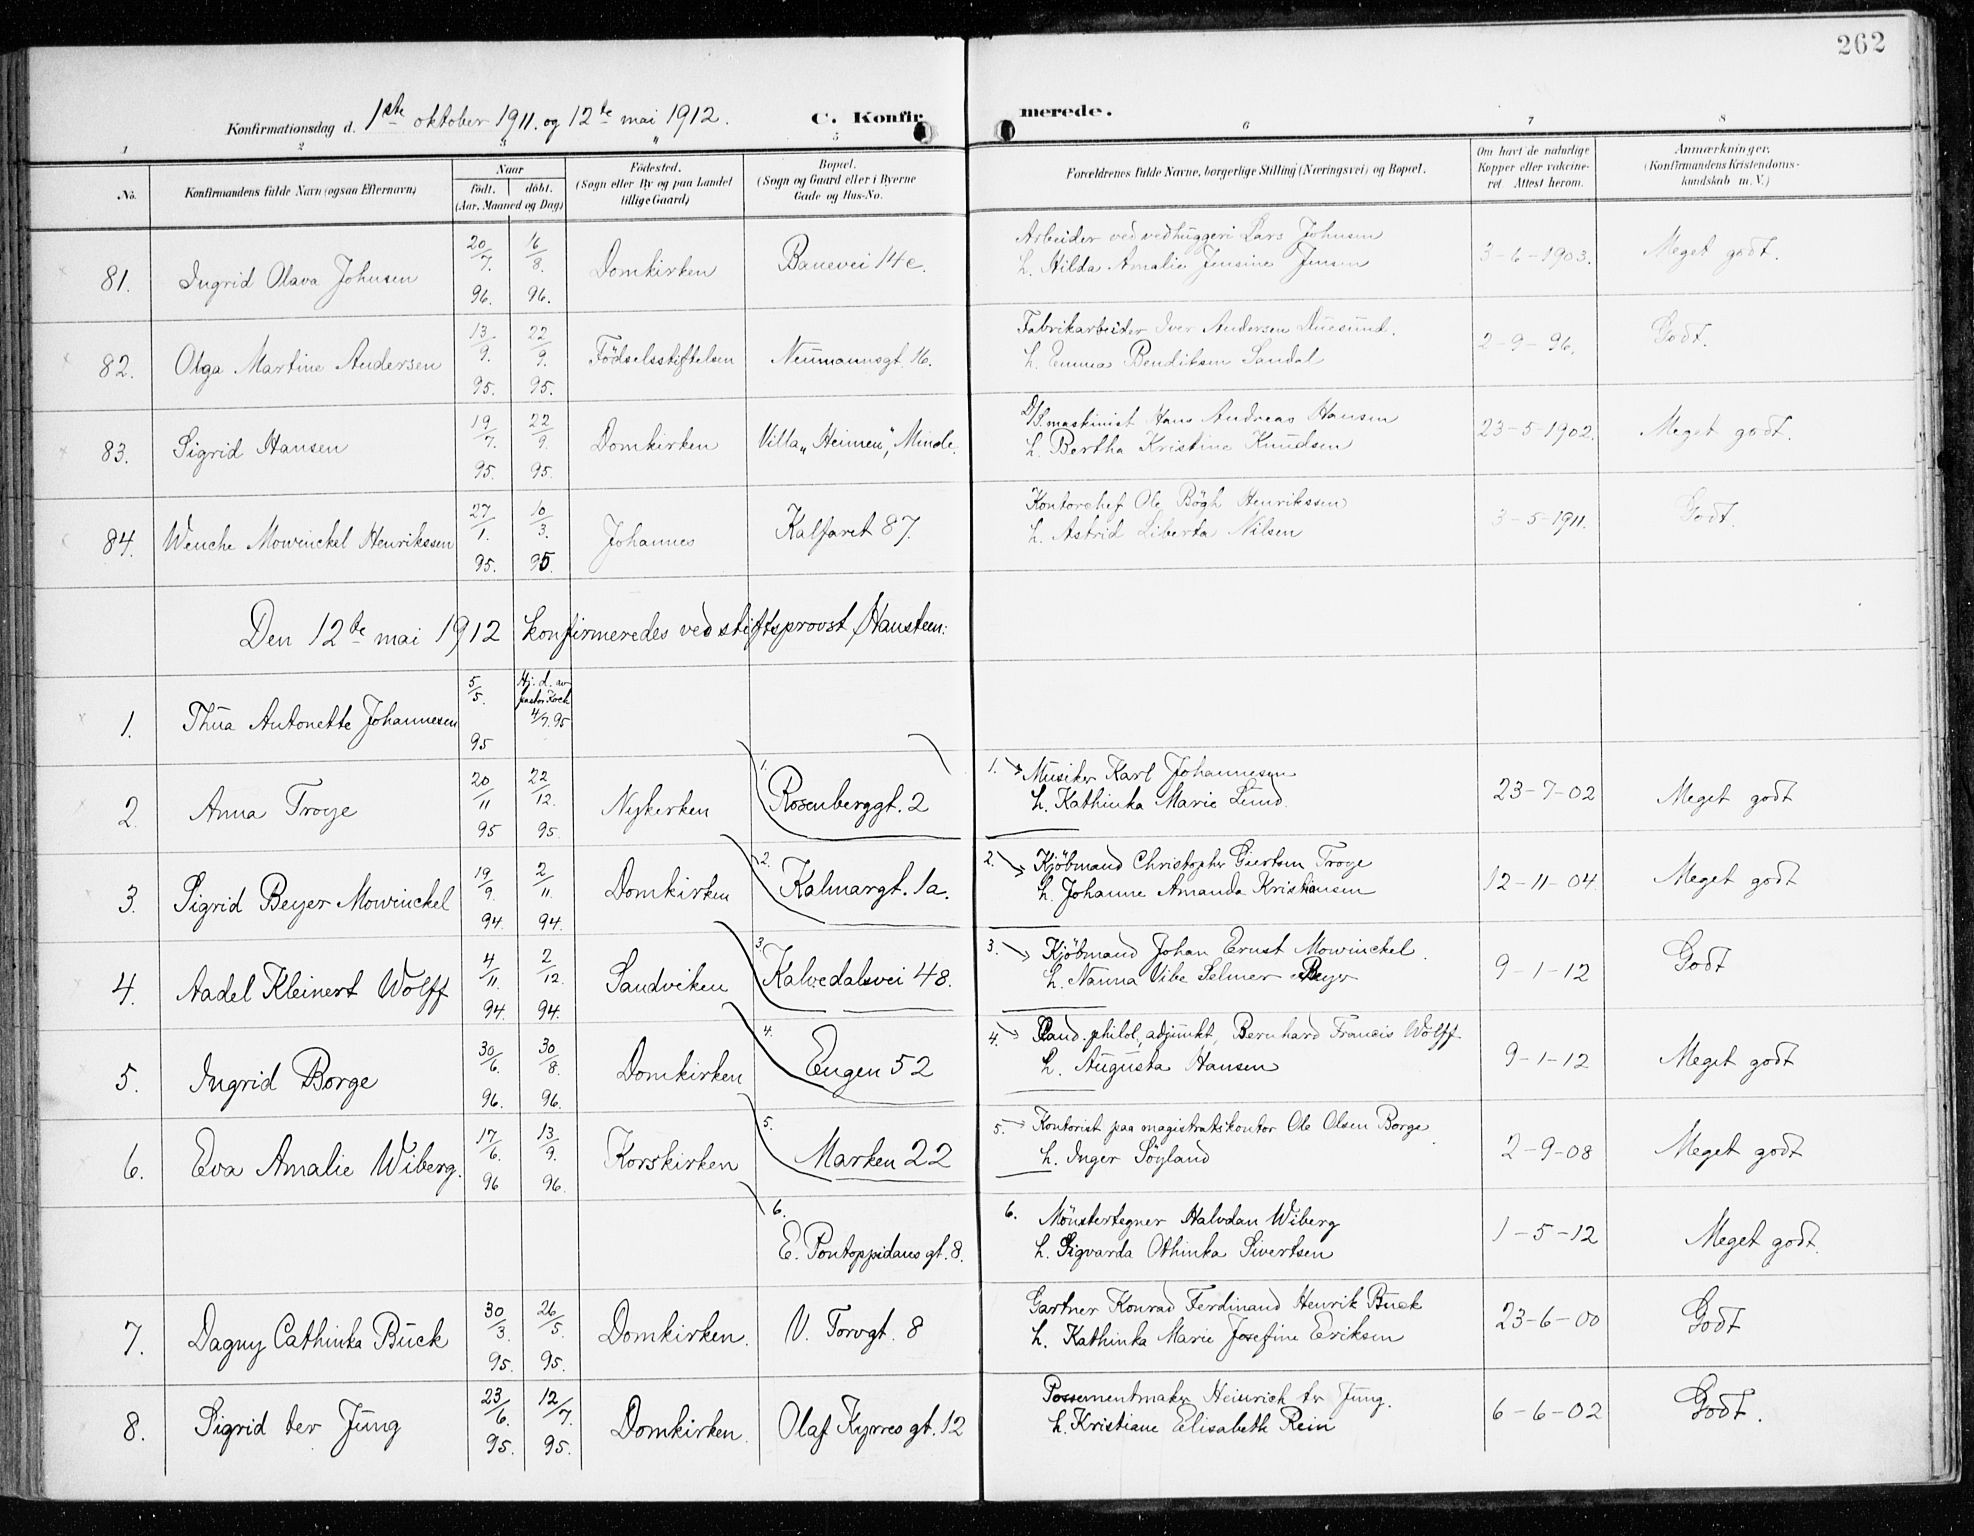 262
Konfirmationsdag d. 1ste oktober 1911. og 12te mai 1912. C. Konfirmerede.
1 2 3 4 5 6 7 8
No. Konfirmandens fulde Navn (ogsaa Efternavn) Naar født. døbt. (Aar, Maaned og Dag) Fødested. (Sogn eller By og paa Landet tillige Gaard) Bopæl. (Sogn og Gaard eller i Byerne Gade og Hus-No. Forældrenes fulde Navne, borgerlige Stilling (Næringsvei) og Bopæl. Om havt de naturlige Kopper eller vaccineret. Attest herom. Anmærkninger. (Konfirmandens Kristendomskundskab m. V.)
81. Ingrid Olava Johnsen 20/7. 96. 16/8. 96. Domkirken Banevei 14c. Arbeider ved vedhuggeri Lars Johnsen 3-6-1903. Meget godt.
h. Hilda Amalie Jensine Jensen
82. Olga Martine Andersen 13/9. 95. 22/9. 95. Födselsstiftelsen Neumannsgt. 16. Fabrikarbeider Iver Andersen 2-9-96. Godt.
h. Emma Bendiksen Sandal
83. Sigrid Hansen 19/7. 95. 22/9. 95. Domkirken Villa „Heimen”, Minde. D/S. maskinist Hans Andreas Hansen 23-5-1902. Meget godt.
h. Bertha Kristine Knudsen
84. Wenche Mowinckel Henrikssen 27/1. 95. 10/3. 95. Johannes Kalfaret 87. Kontorchef Ole Bögh Henrikssen 3-5-1911. Godt.
h. Astrid Liberta Nilsen
Den 12te mai 1912 konfirmeredes ved stiftsprovst Hansteen:
1. Thua Antonette Johannesen 5/5. 95 Hj. d. av pastor Koch 4/7. 95
2. Anna Troye 20/11 95 22/12. 95. Nykirken 1. Rosenberggt. 2 1. Musiker Karl Johannesen 23-7-02 Meget godt
h. Kathinka Marie Lund.
3. Sigrid Beyer Mowinckel 19/9. 94. 2/11. 94. Domkirken 2. Kalmargt. 1a. 2. Kjöbmand Christopher Giertsen Troye 12-11-04 Meget godt
h. Johanne Amanda Kristiansen
4. Aadel Kleinert Wolff 4/11. 94. 2/12. 94. Sandviken 3. Kalvedalsvei 48. 3. Kjöbmand Johan Ernst Mowinckel. 9-1-12 Godt
h. Nanna Vibe Selmer Beyer
5. Ingrid Borge 30/6. 96. 30/8. 96. Domkirken 4. Engen 52 4. Cand. philol, adjunkt, Bernhard Francis Wolff 9-1-12 Meget godt
h. Augusta Hansen
6. Eva Amalie Wiberg. 17/6. 96 13/9. 96. Korskirken 5. Marken 22 5. Kontorist paa magistratskontor Ole Olsen Borge 2-9-08 Meget godt
h. Inger Söyland
6. E. Pontoppidans gt. 8. 6. Mönstertegner Halvdan Wiberg 1-5-12 Meget godt.
h. Sigvarda Othinka Sivertsen
7. Dagny Cathinka Buck 30/3. 95. 26/5. 95. Domkirken. V. Torvgt. 8 Gartner Konrad Ferdinand Henrik Buck 23-6-00 Godt
h. Kathinka Marie Josefine Eriksen
8. Sigrid ter Jung 23/6. 95. 12/7. 95. Domkirken. Olaf Kyrres gt. 12 Possementmaker Heinrich ter Jung. 6-6-02 Godt.
h. Kristiane Elisabeth Rein